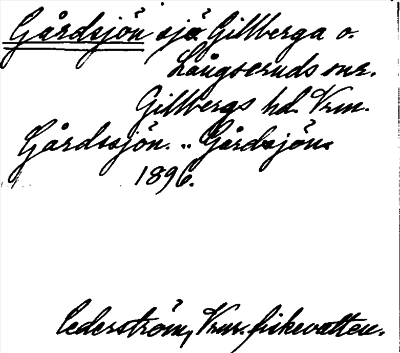 Gårdsjön sjö Gillberga o.
Långseruds snr.
Gillbergs hd. Vrm.
Gårdssjön. „ Gårdsjön.
1896.
Cederström, Vrm. fiskevatten.